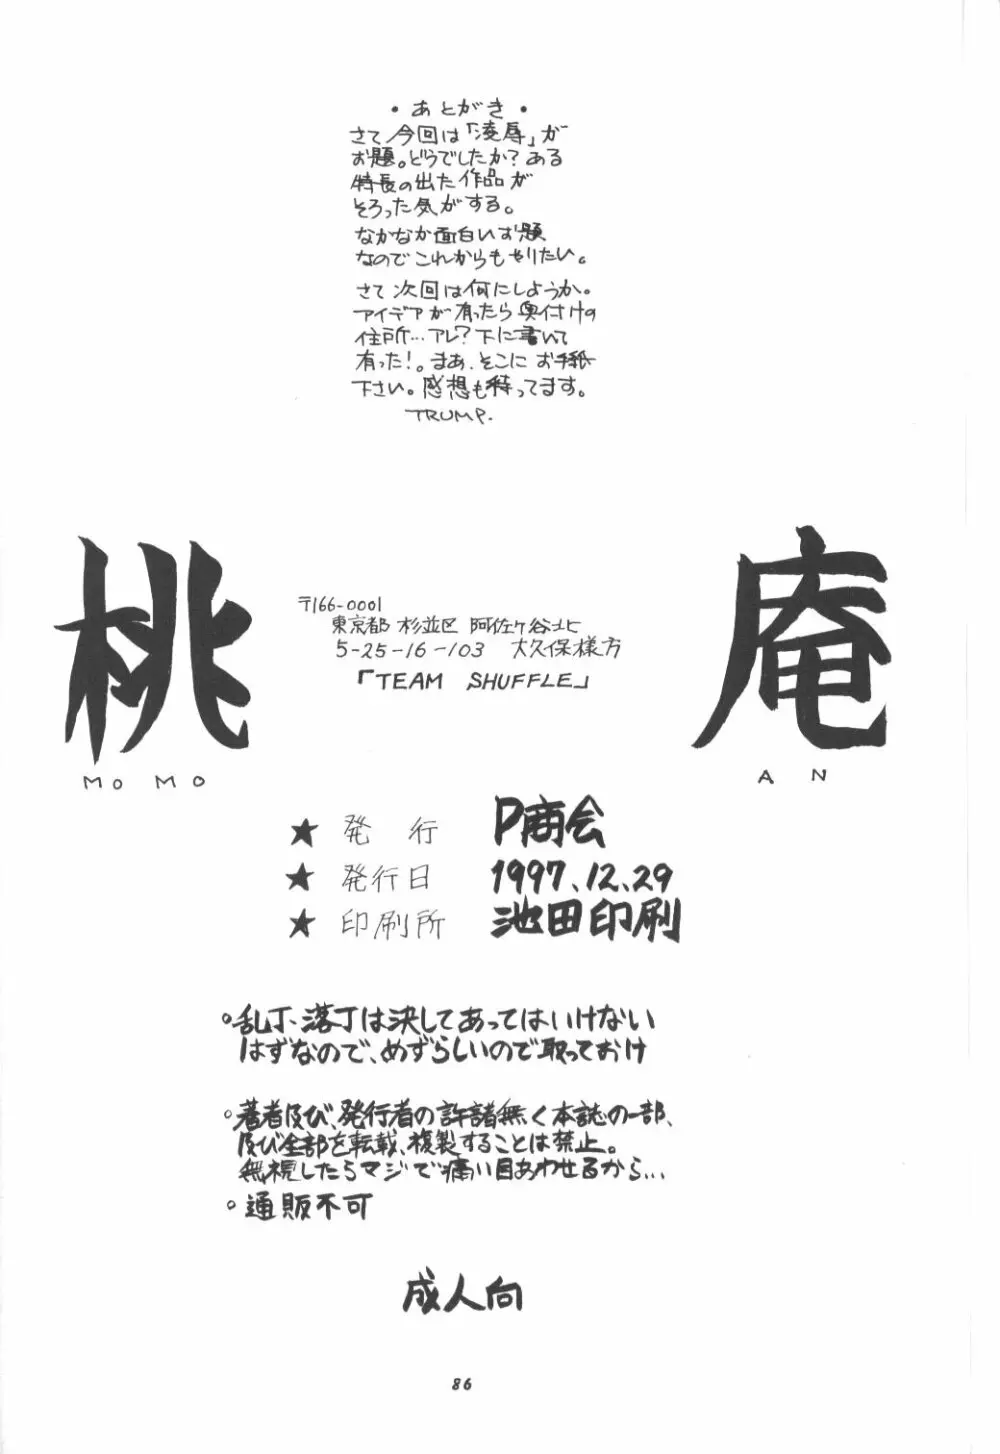 ・あとがき・
さて今回は「凌辱」が
お題。どうでしたか？ある
特長の出た作品が
そろった気がする。
なかなか面白いお題
なのでこれからもやりたい。
さて次回は何にしようか。
アイデアが有ったら奥付けの
住所…アレ？下に書いて
有った！。まぁ、そこにお手紙
下さい。感想も待ってます。
TRUMP.
桃 庵
〒166-0001
東京都 杉並区 阿佐ヶ谷北
5-25-16-103 大久保様方
「TEAM SHUFFLE」
MOMO AN
★ 発行 P商会
★ 発行日 1997.12.29
★ 印刷所 池田印刷
。乱丁、落丁は決してあってはいけない
はずなので、めずらしいので取っておけ
。著者及び、発行者の許諾無く本誌の一部、
及び全部を転載、複製することは禁止。
無視したらマジで痛い目あわせるから…
。通販不可
成人向
86